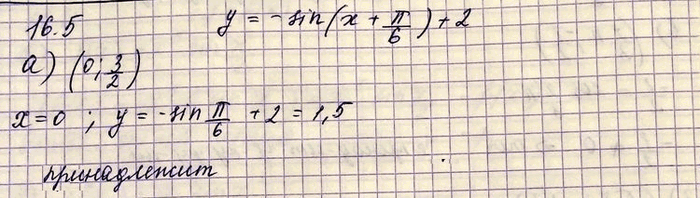 16.5 y = -sin(x + π/6) + 2
а) (0; 3/2)
x = 0 ; y = -sin π/6 + 2 = 1,5
принадлежит